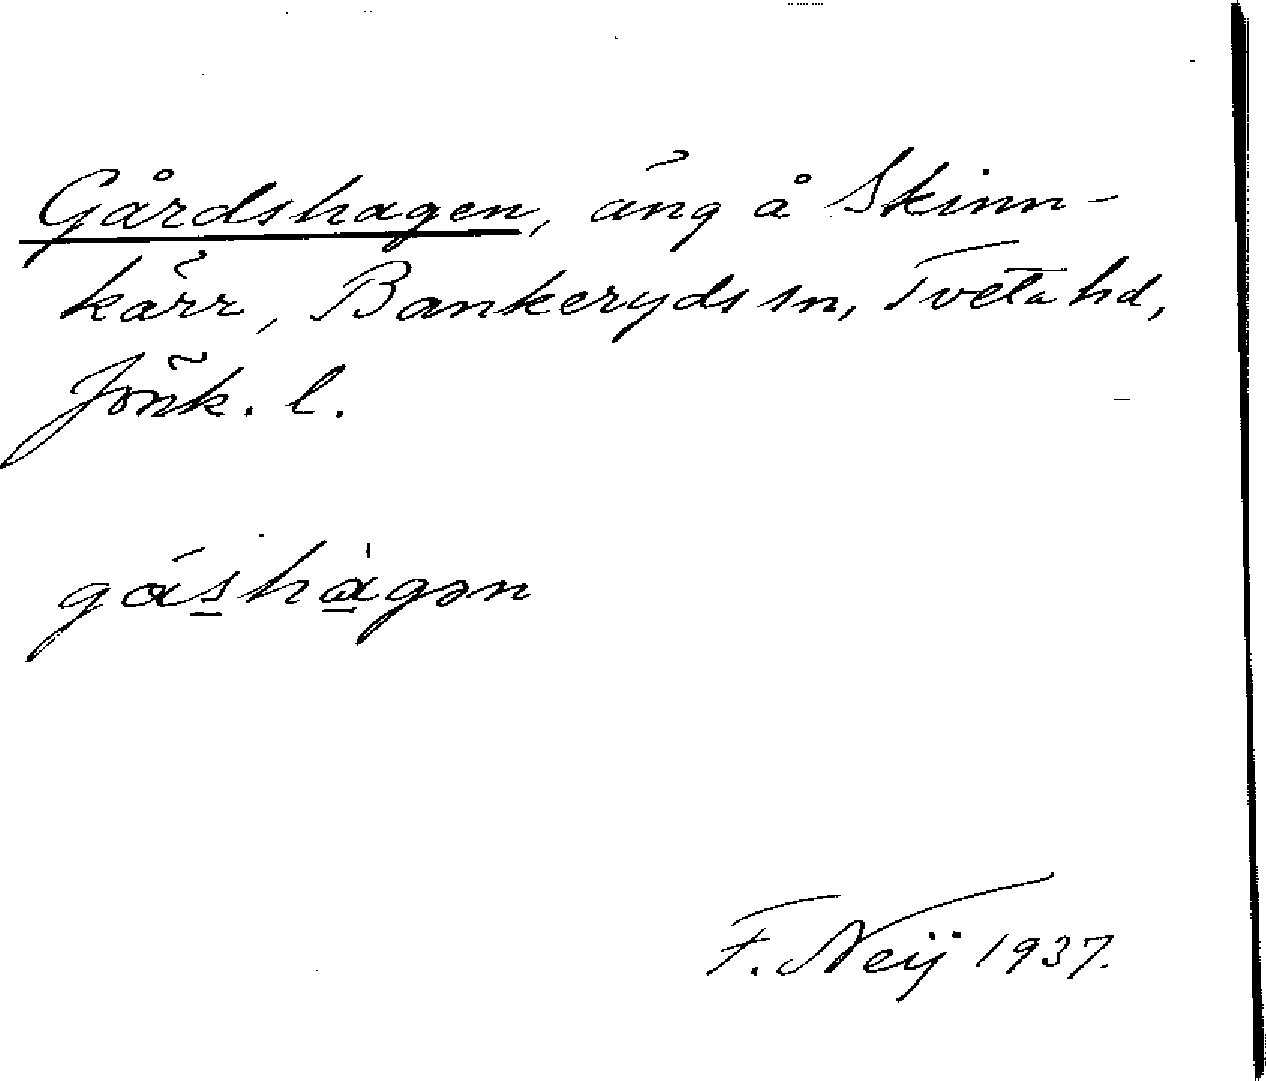 Gårdshagen, äng å Skinn-
kärr, Bankeryds sn, Tveta hd,
Jönk. l.
gáshàgən
F. Neij 1937.